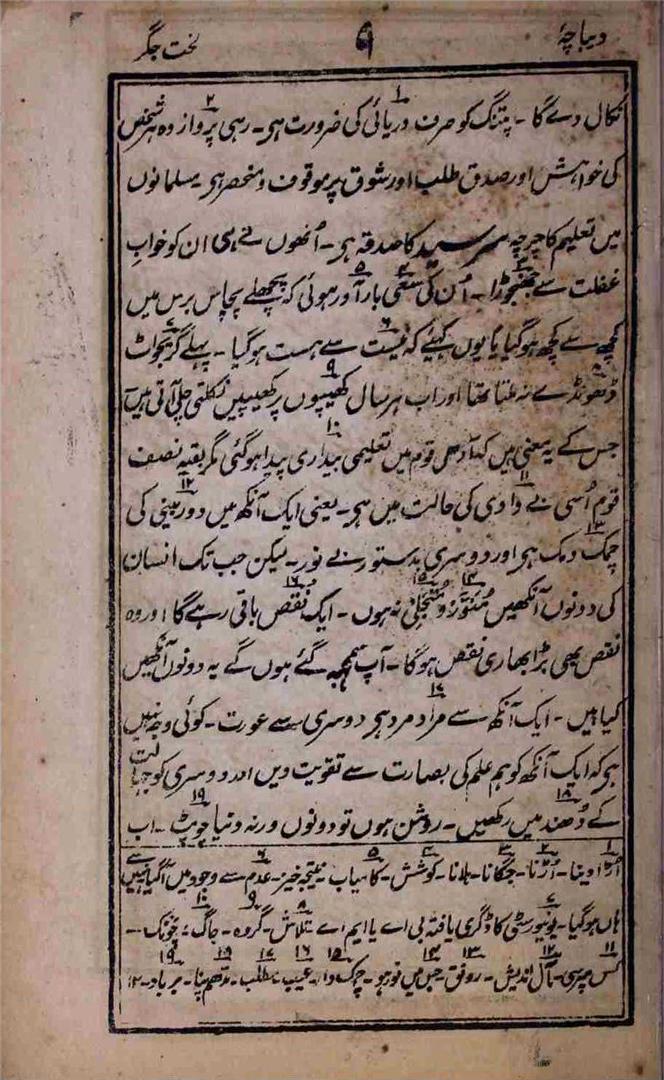 دیباچۂ
۹
لخت جگر
نکال دے گا - پتنگ کو صرف دریائی کی ضرورت ہی - رہی پرواز وہ ہر شخص
کی خواہش اور صدق طلب اور شوق پر موقوف و منحصر ہی - مسلمانوں
میں تعلیم کا چرچہ سر سید کا صدقہ ہی - اُنھوں نے ہی ان کو خوابِ
غفلت سے جھنجوڑا - اُن کی سعی بار آور ہوئی کہ پچھلے پچاس برس میں
کچھ سے کچھ ہو گیا یا یوں کہئے کہ نیست سے ہست ہو گیا - پہلے گریجوایٹ
ڈھونڈے نہ ملتا تھا اور اب ہر سال کھیپوں پر کھیپیں نکلتی چلی آتی ہیں
جس کے یہ معنی ہیں کہ آدھی قوم میں تعلیمی بیداری پیدا ہو گئی مگر بقیہ نصف
قوم اُسی بے دادی کی حالت میں ہی - یعنی ایک آنکھ میں دور بینی کی
چمک دمک ہی اور دوسری بدستور بے نور - لیکن جب تک انسان
کی دونوں آنکھیں مُنَوَّر و مُتَجَلّیٰ نہ ہوں - ایک نقص باقی رہے گا اور وہ
نقص بھی بڑا بھاری نقص ہو گا - آپ سمجھ گئے ہوں گے یہ دونوں آنکھیں
کیا ہیں - ایک آنکھ سے مراد مرد ہی دوسری سے عورت - کوئی وجہ نہیں
ہی کہ ایک آنکھ کو ہم علم کی بصارت سے تقویت دیں اور دوسری کو جہالت
کے دُھند میں رکھیں - روشن ہوں تو دونوں ورنہ دنیا چوپٹ - اب
۱ اُڑا دینا - ۲ اُڑنا - ۳ جگانا - ہلانا - ۴ کوشش - ۵ کامیاب - نتیجہ خیز - ۶ عدم سے وجود میں آگیا نہیں سے
ہاں ہو گیا - ۷ یونیورسٹی کا ڈگری یافتہ بی اے یا ایم اے ۸ تلاش - ۹ گروہ - ۱۰ جاگ -
۱۱ کس مپرسی - ۱۲ مآل اندیش - ۱۳ رونق - ۱۴ جس میں نور ہو - ۱۵ چمک دار - ۱۶ عیب - ۱۷ مطلب - ۱۸ مدھم پنا - ۱۹ برباد - ۱۲